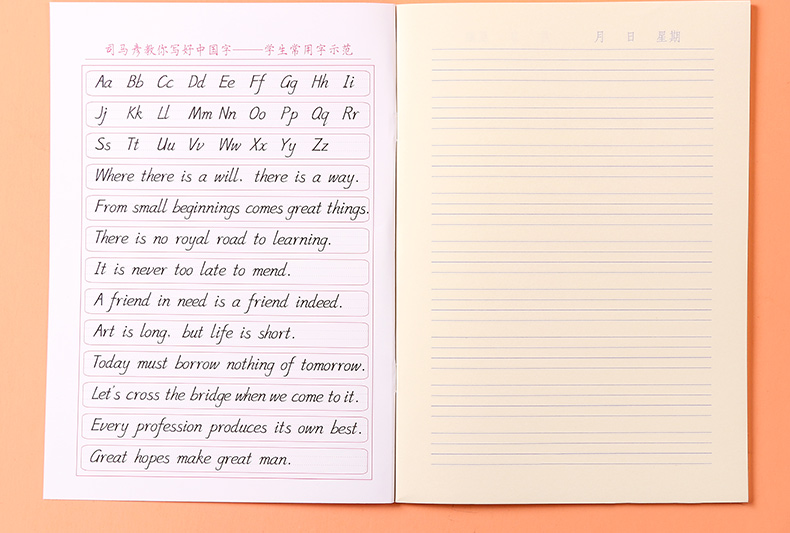 司马彦教你写好中国字——学生常用字示范
Aa Bb Cc Dd Ee Ff Gg Hh Ii
Jj Kk Ll Mm Nn Oo Pp Qq Rr
Ss Tt Uu Vv Ww Xx Yy Zz
Where there is a will. there is a way.
From small beginnings comes great things.
There is no royal road to learning.
It is never too late to mend.
A friend in need is a friend indeed.
Art is long. but life is short.
Today must borrow nothing of tomorrow.
Let's cross the bridge when we come to it.
Every profession produces its own best.
Great hopes make great man.
月 日 星期